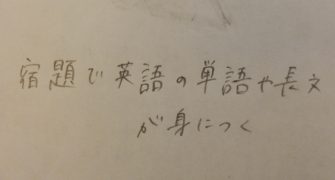 宿題で英語の単語や長文
が身につく